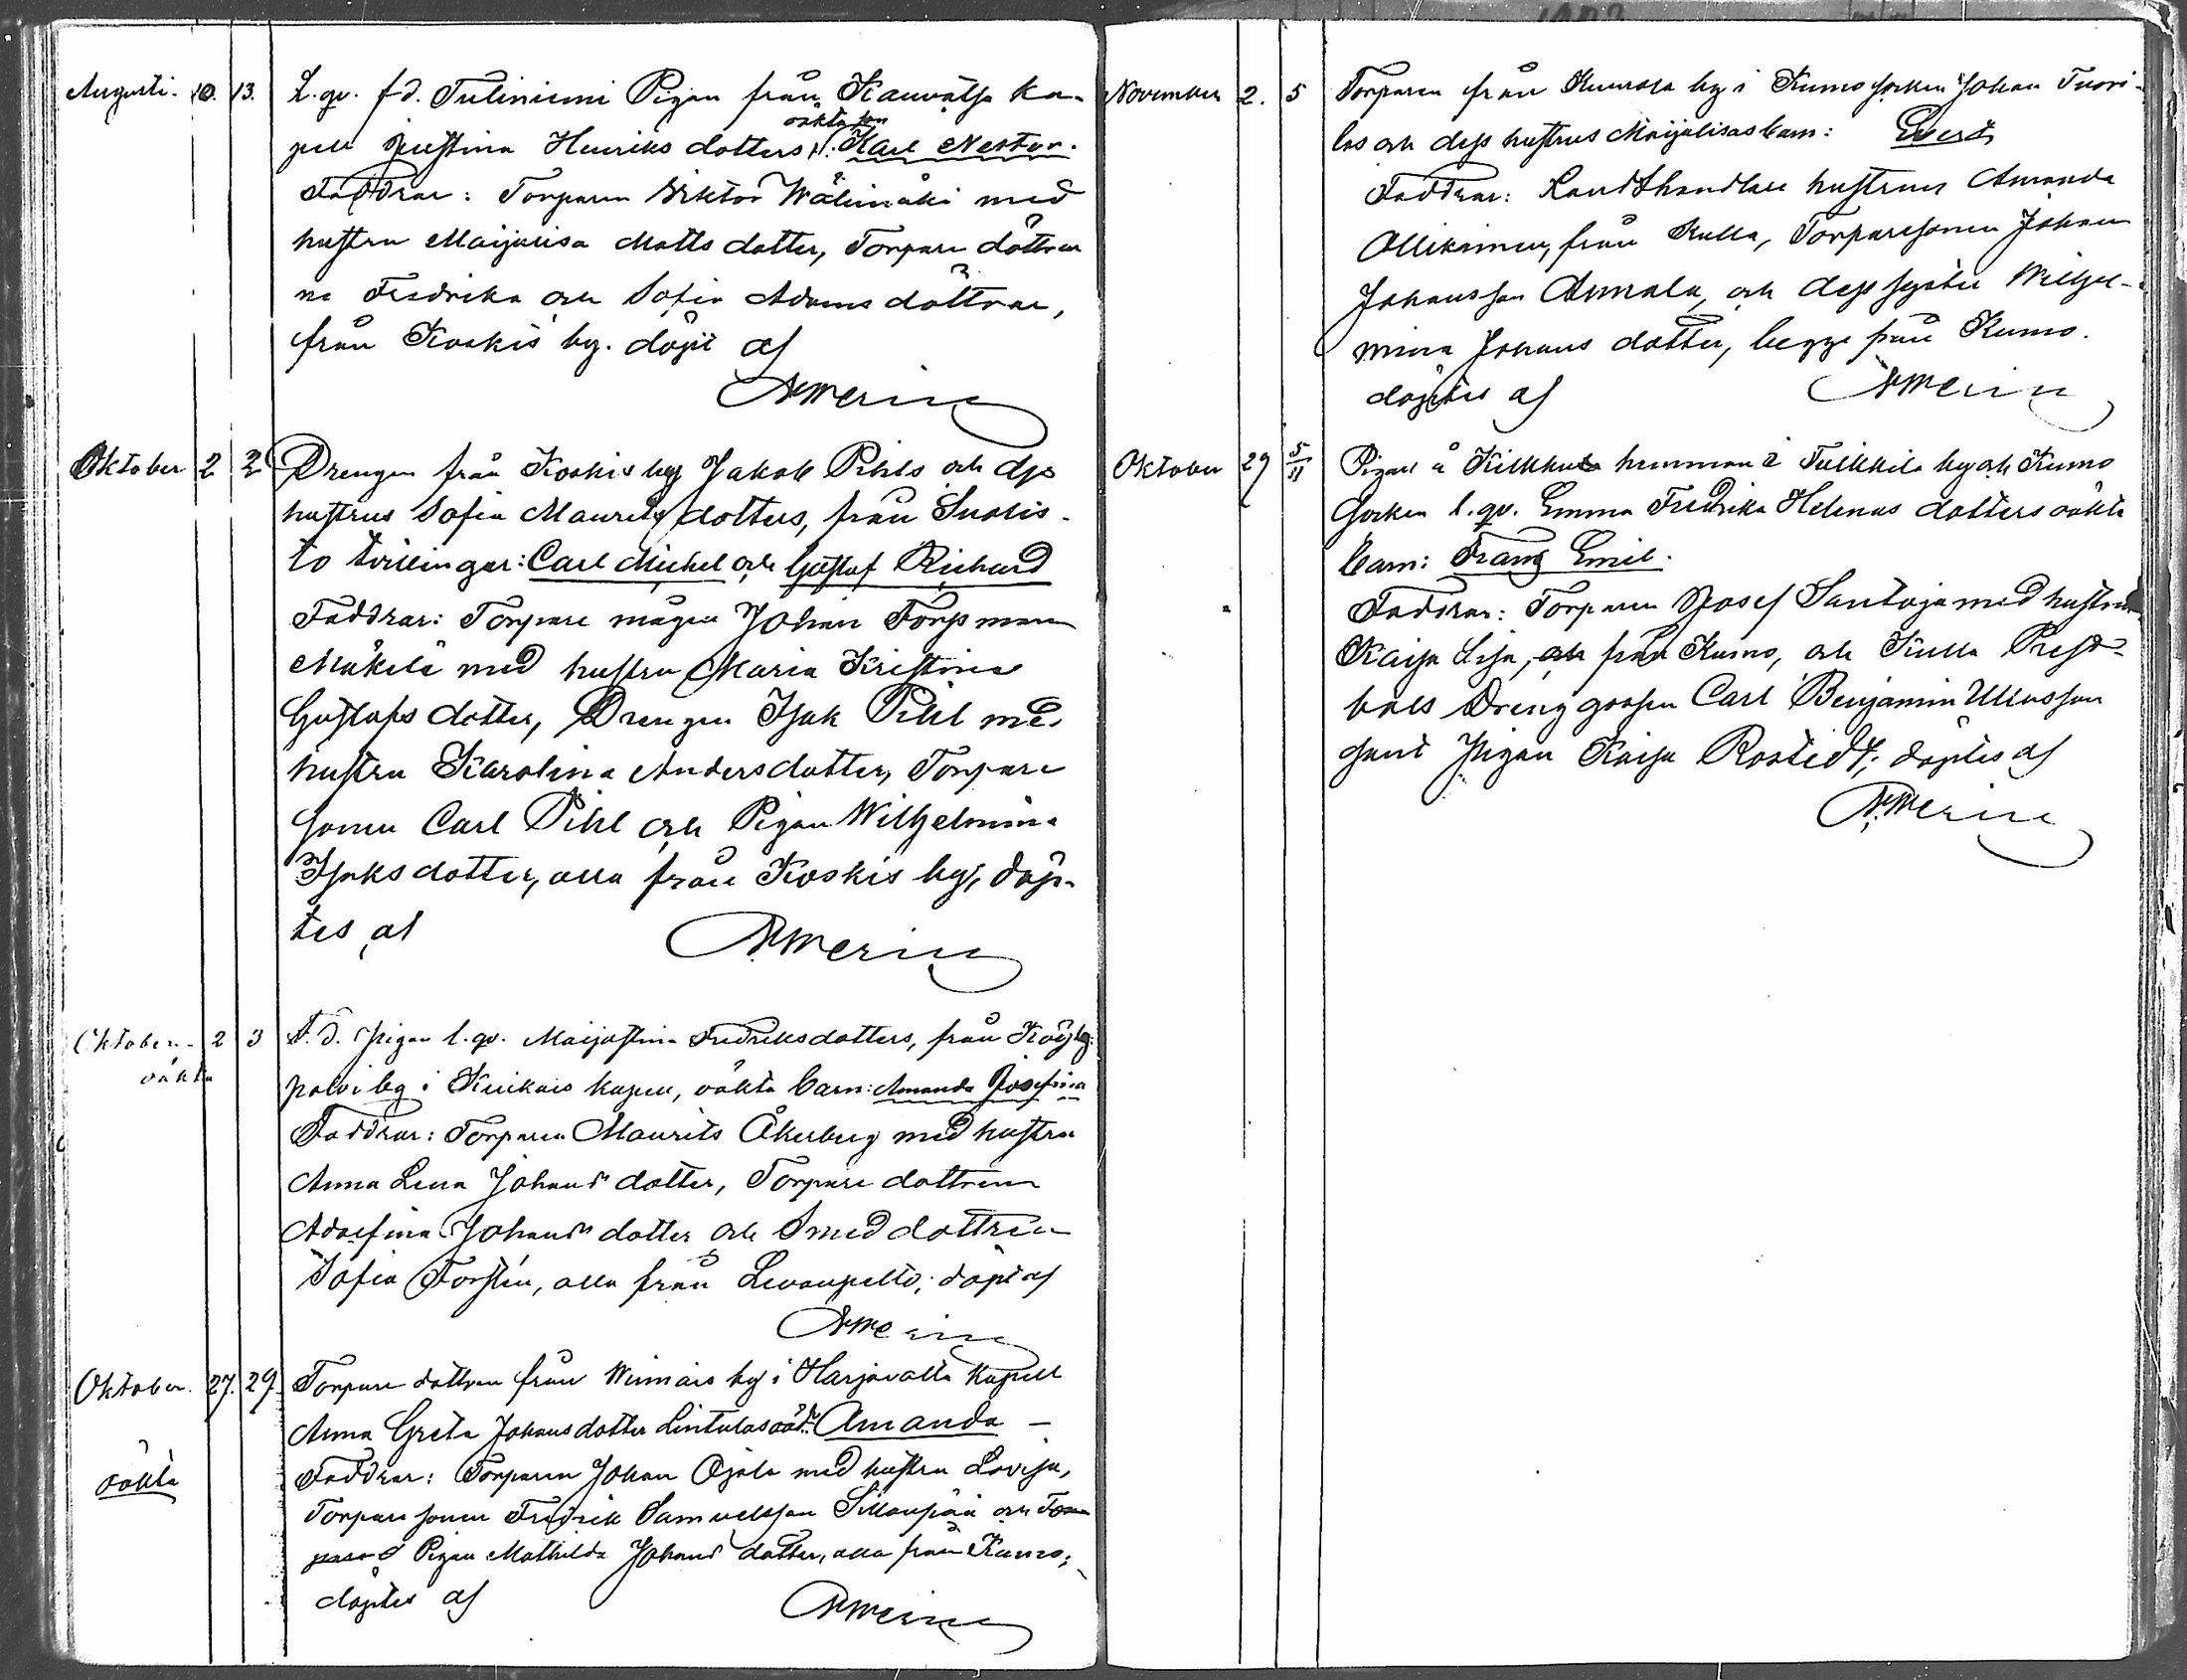 Augusti. 10. 13. L. qv. f d. Tuliniemi Pigan från Kauvatsa ka-
oäkta son
pell Justina Henriks dotters : Karl Nestor.
Faddrar: Torparen Viktor Wälimäki med
hustru Maijalisa Matts dotter, Torpare döttrar
na Fredrika och Sofia Adams döttrar,
från Koskis by. döpt af
A Merin
Oktober 2 2 Drengen från Koskis by Jakob Pihls och dess
hustrus Sofia Maurits dotters, från Suokis-
to tvillingar: Carl Michel och Gustaf Richard
Faddrar: Torpare mågen Johan Torpman
Mäkelä med hustru Maria Kristina
Gustafs dotter, Drengen Isak Pihl med
hustru Karolina Andersdotter, Torpare
sonen Carl Pihl och Pigan Wilhelmina
Isaks dotter, alla från Koskis by, döp-
tes af
A Merin
Oktober 2 3 f. d. pigan l. qv. Maijastina Fredriksdotters, från
oäkta
polvi by i Kiukais kapell, oäkta barn: Amanda Josefina
Faddrar: Torparen Maurits Åkerberg med hustru
Anna Lena Johans dotter, Torpare dottren
Adolfina Johans dotter och Smed dottren
Sofia Forstén, alla från Levanpelto; döpt af
A Merin
Oktober. 27. 29. Torpare dottren från Winnais by i Harjavalta Kapell
Anna Greta Johansdotter Lintulas oäkt: Amanda —
oäkta
Faddrar: Torparen Johan Ojala med hustru Lovisa,
Torpare sonen Fredrik Samuelsson Sillanpää och Tor
pare d Pigan Mathilda Johans dotter, alla från Kumo;
döptes af
A Merin
November 2. 5 Torparen från Kuurola by i Kumo socken Johan Tuori-
las och dess hustrus Maijalisas barn: Evert
Faddrar: Landthandlare hustrun Amanda
Ollikainen, från Kulla, Torparesonen Johan
Johansson Annala, och dess syster Wilhel-
mina Johans dotter, begge från Kumo.
döptes af A Merin
Oktober 29 5/11 Pigan å Kilkku hemman i Tulkkila by och Kumo
Socken l. qv. Emma Fredrika Helenas dotters oäkta
barn: Frans Emil.
Faddrar: Torparen Josef Santoja med hustru
Kaisa Lisa, och från Kumo, och Kulla Prest-
bols Dreng gossen Carl Benjamin Ullusson
samt Pigan Kaisa Rostedt; döptes af
A Merin